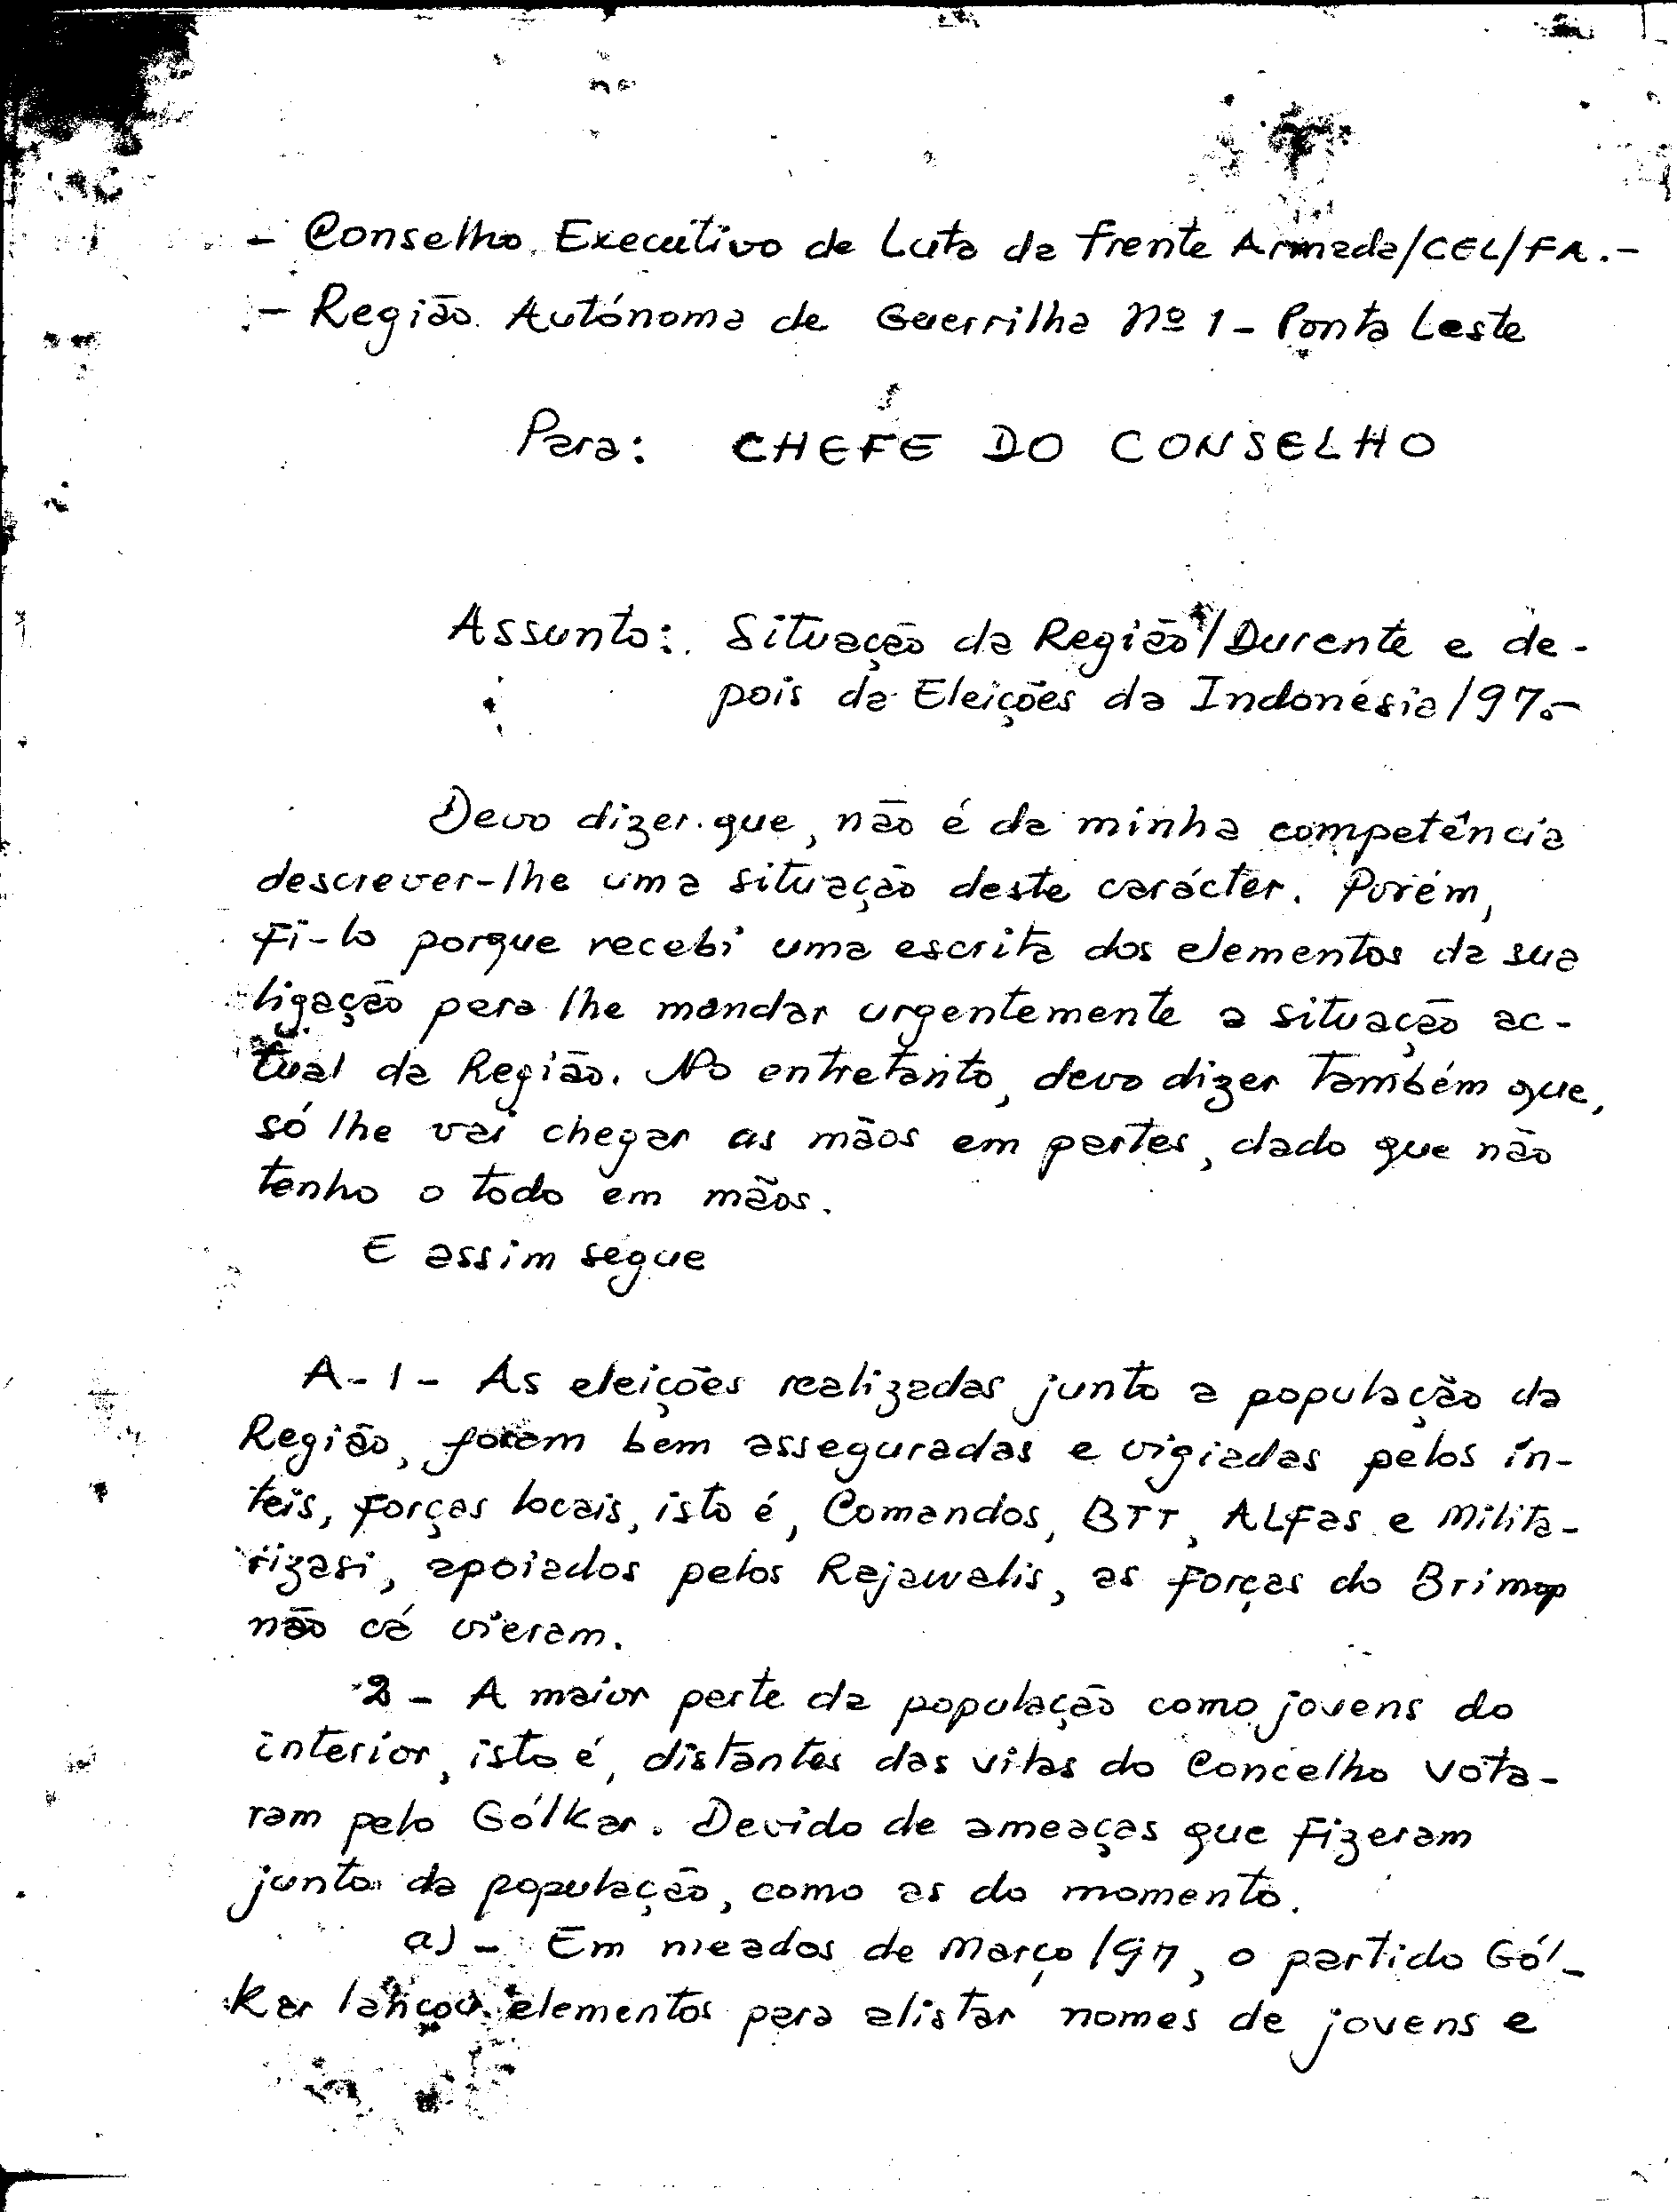 - Conselho Executivo de Luta da Frente Armada/CEL/FA.-
- Região Autónoma de Guerrilha Nº 1 - Ponta Leste
Para: CHEFE DO CONSELHO
Assunto: Situação da Região/Durante e de-
pois da Eleições da Indonésia/97.-
Devo dizer que, não é da minha competência
descrever-lhe uma situação deste carácter. Porém,
fi-lo porque recebi uma escrita dos elementos da sua
ligação para lhe mandar urgentemente a situação ac-
tual da Região. No entretanto, devo dizer também que,
só lhe vai chegar as mãos em partes, dado que não
tenho o todo em mãos.
E assim segue
A-1- As eleições realizadas junto a população da
Região, foram bem asseguradas e vigiadas pelos in-
teis, forças locais, isto é, Comandos, BTT, ALFas e Milita-
rizasi, apoiados pelos Rajawalis, as forças do Brimop
não cá vieram.
2 - A maior parte da população como jovens do
interior, isto é, distantes das vilas do Concelho vota-
ram pelo Gólkar. Devido de ameaças que fizeram
junto da população, como as do momento.
a) - Em meados de Março/97, o partido Gól-
kar lançou elementos para alistar nomes de jovens e